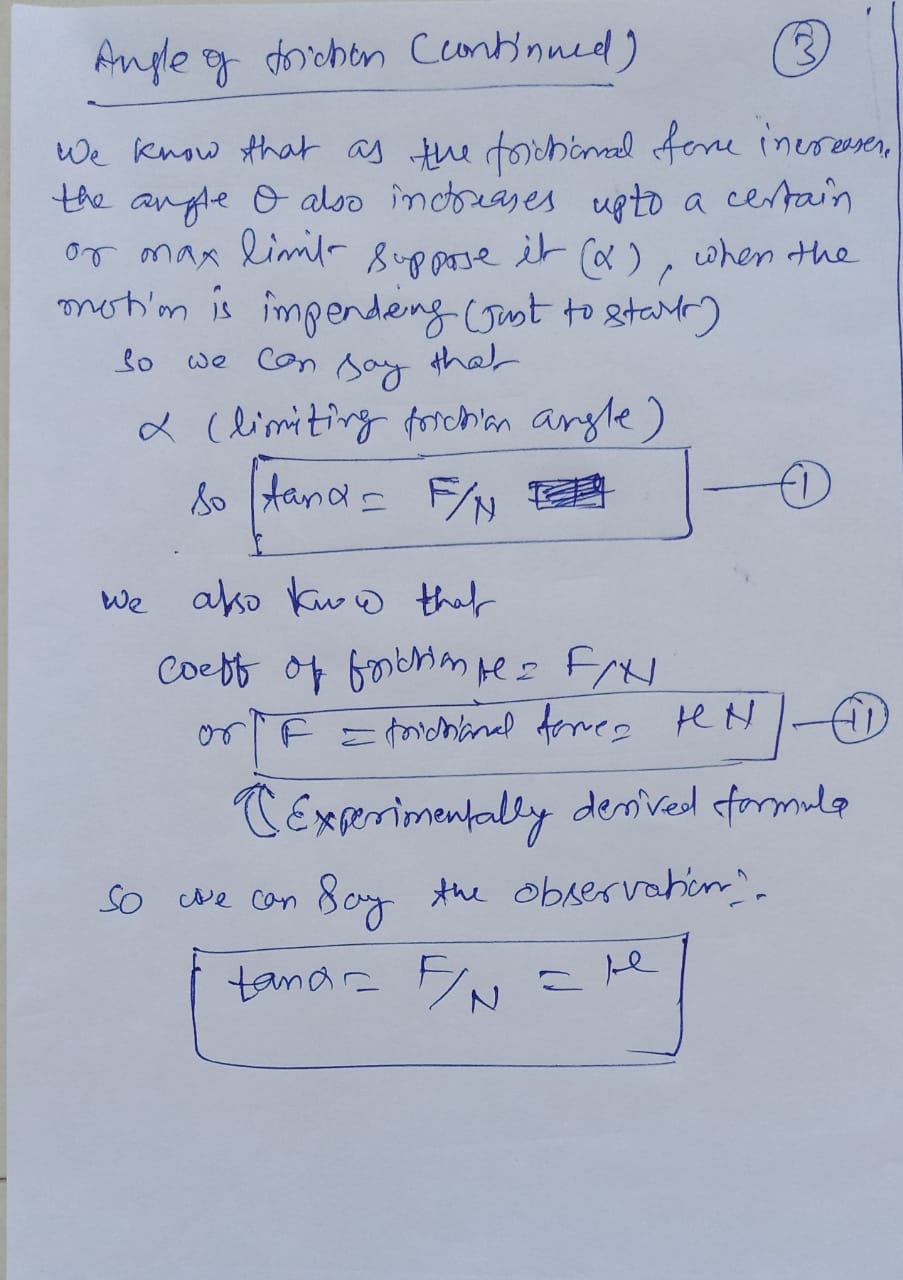 Angle of friction (continued)
3
We know that as the frictional force increases,
the angle θ also increases upto a certain
or max limit suppose it (α), when the
motion is impending (Just to start)
So we can say that
α (limiting friction angle)
So tanα = F/N — I
We also know that
Coeff of friction μ = F/N
or F = frictional force = μN — II
(Experimentally derived formula
So we can say the observation:-
tanα = F/N = μ